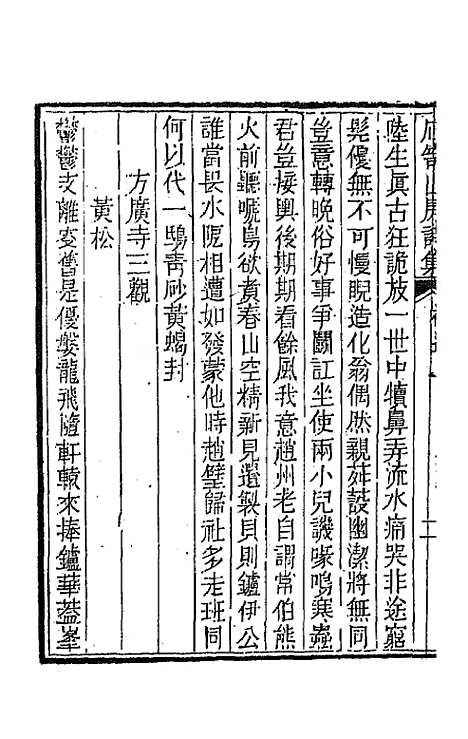 山房詩集
二
陸生眞古狂詭放一世中犢鼻弄流水痛哭非途窮
髡優無不可慢睨造化翁偶然親茲鼓幽潔將無同
豈意轉晚俗好事爭鬭訌坐使兩小兒譏喙鳴寒螿
君豈接輿後期期看餘風我意趙州老自謂常伯熊
火前聽嘑鳧欲煑春山空精新見遺製貝則鑪伊公
誰當畏水阨相遭如發蒙他時趙璧歸社多走班同
何以代一鴟靑砂黃蝎封
方廣寺三觀
黃松
鬱鬱支離叜曾是偃蹇龍飛隨軒轅來捧鑪華葢峯